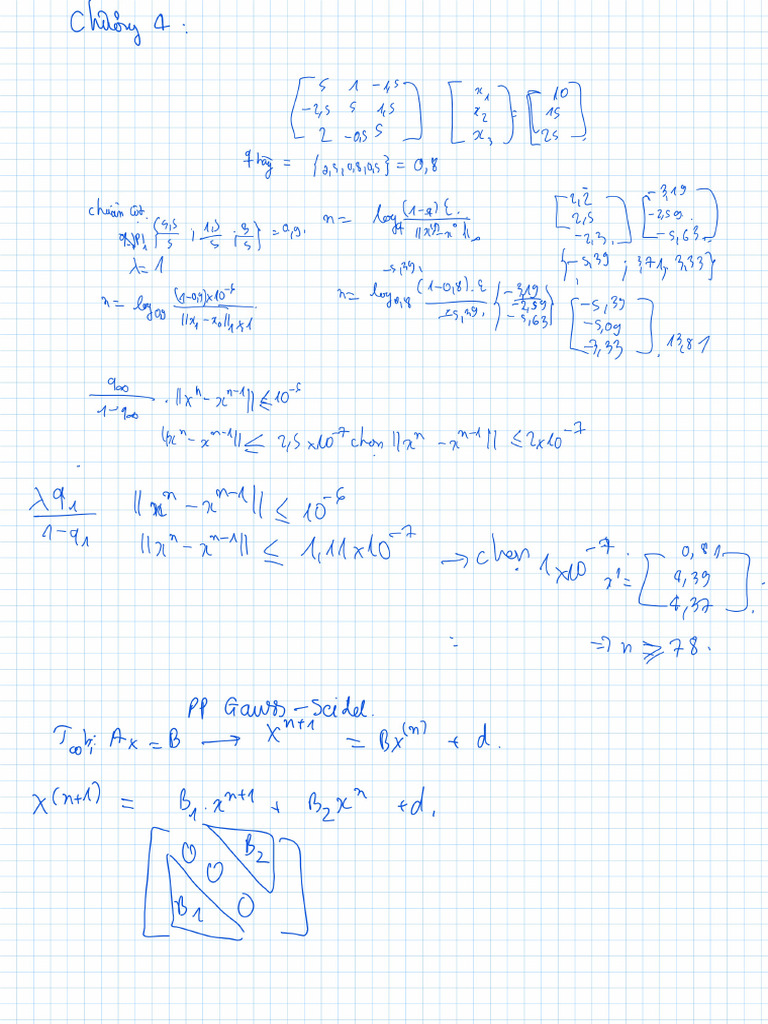 Chương 4:
[5 1 -1,5; -2,5 5 1,5; 2 -0,5 5] [x1; x2; x3] = [10; 15; 25]
q hàng = {0,5; 0,8; 0,5} = 0,8
chuẩn cột
q1 = {4,5/5; 1,5/5; 3/5} = 0,9.
λ = 1
n = log0,9 (1-0,9)×10^-6 / ||x1 - x0||1 × 1
n = logq (1-q)ξ. / ||x^1 - x^0||∞
-5,39.
n = log0,8 (1-0,8).ξ / -5,39. {-3,19; -2,59; -5,63}
[2,2; 2,5; -2,3.] [-3,19; -2,59.; -5,63.]
{-5,39; 3,71, 3,33}
[-5,39; -5,09; -3,33]. 13,81
q∞ / 1-q∞ . ||x^n - x^n-1|| ≤ 10^-6
||x^n - x^n-1|| ≤ 2,5×10^-7 chọn ||x^n - x^n-1|| ≤ 2×10^-7
λq1 / 1-q1 ||x^n - x^n-1|| ≤ 10^-6
||x^n - x^n-1|| ≤ 1,11×10^-7 → chọn 1×10^-7.
x^1 = [0,81; 4,39; 4,37].
⇒ n ≥ 78.
PP Gauss-Seidel.
Ax = B → X^n+1 = Bx^(n) + d.
X^(n+1) = B1.x^n+1 + B2x^n + d.
[0 B2
0
B1 0]